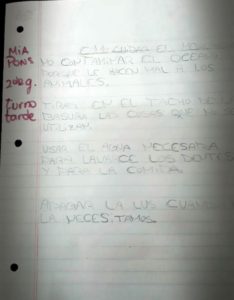 MiA
PONS
2do g.
turno
tarde
CUIDAR EL
NO CONTAMINAR EL OCEA
PORQUE LE HACEN MAL A LOS
ANIMALES.
TIRAR EN EL TACHO DE L
BASURA LAS COSAS QUE NO
UTILIZAN.
USAR EL AGUA NECESARIA
PARA LAVARCE LOS DIENTES
Y PARA LA COMIDA.
APAGAR LA LUS CUANDO
LA NECESITAMOS